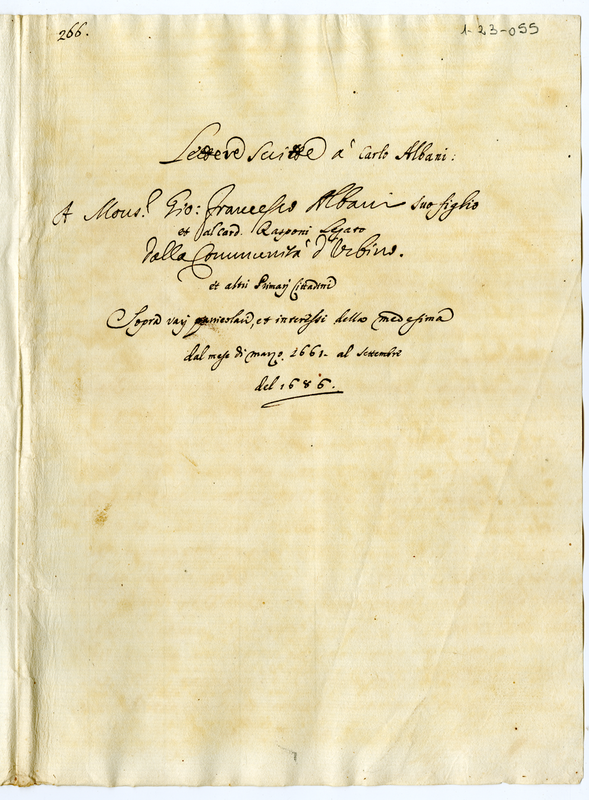 266.
1-23-055
Lettere Scritte à Carlo Albani:
A Mons.r Gio: Francesco Albani suo figlio
et al card. Rasponi Legato
dalla Communità d'Urbino.
et altri Primarj Cittadini
Sopra varj particolari, et interessi della medesima
dal mese di marzo. 1661- al settembre
del 1686.